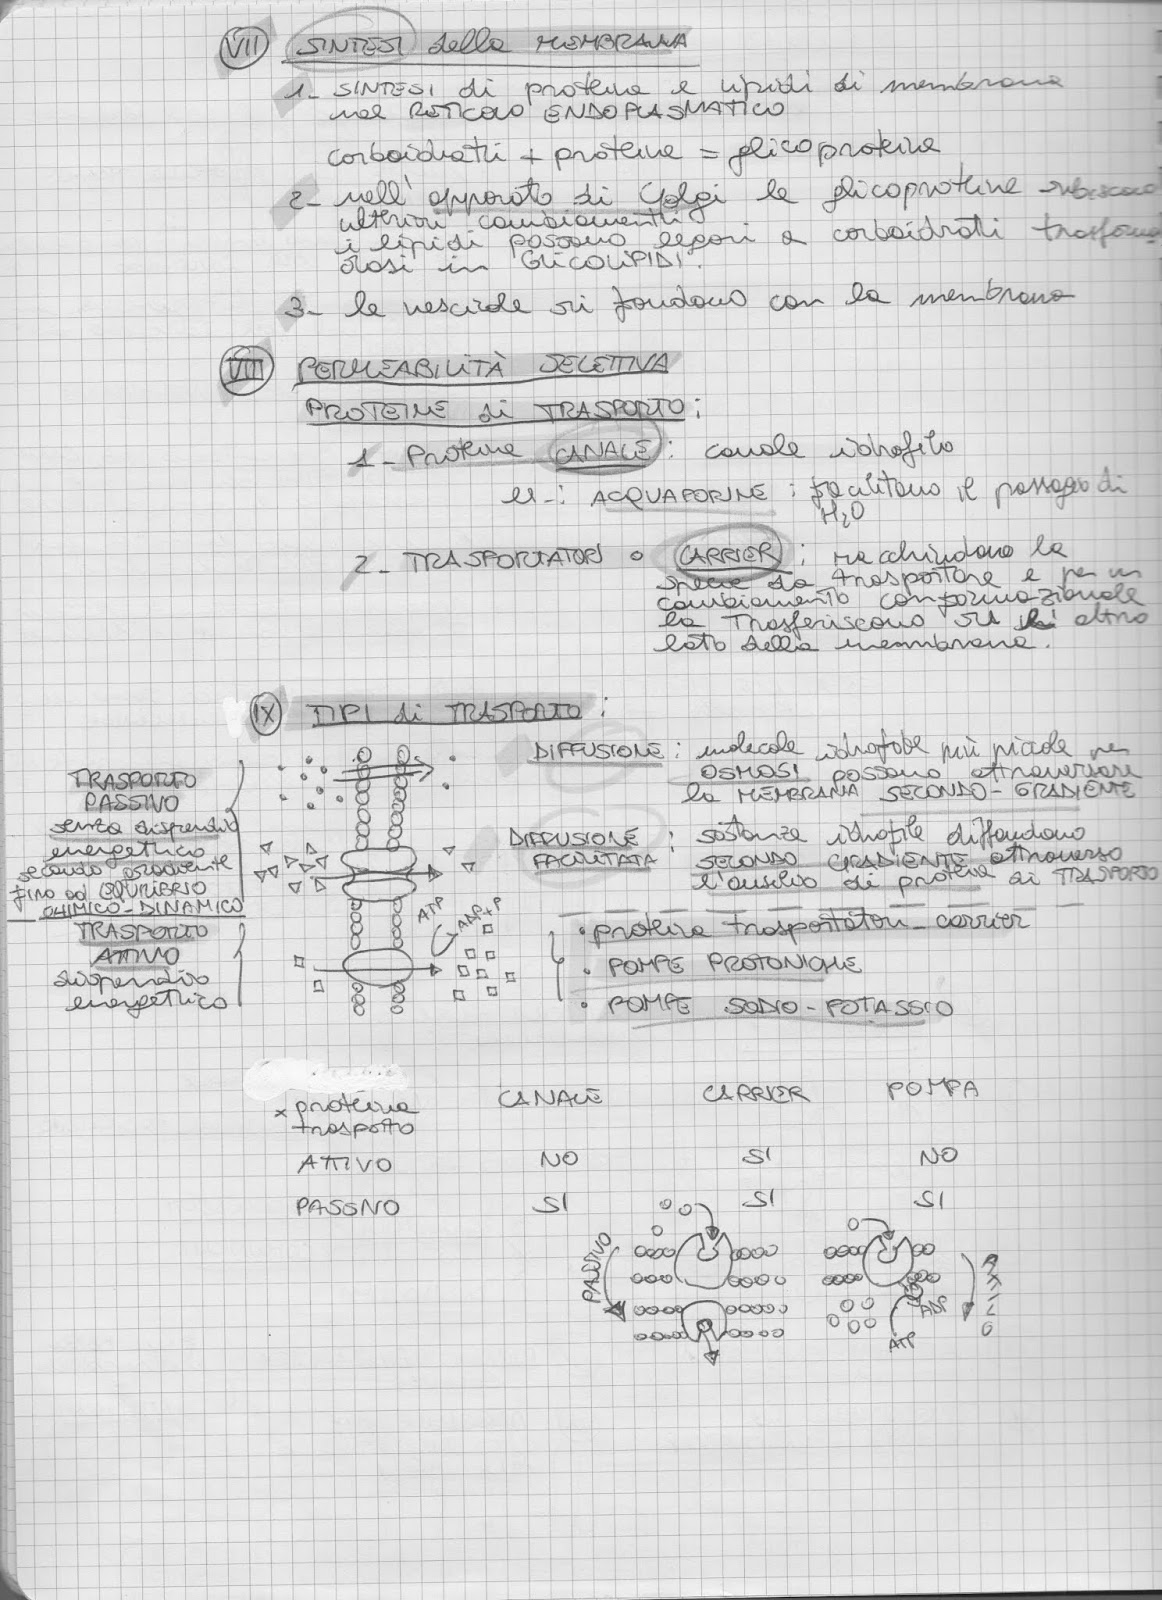 VII SINTESI della MEMBRANA
1- SINTESI di proteine e lipidi di membrana
nel RETICOLO ENDOPLASMATICO
carboidrati + proteine = glicoproteine
2- nell'apparato di Golgi le glicoproteine subiscono
ulteriori cambiamenti
i lipidi possono legarsi a carboidrati trasforman
dosi in GLICOLIPIDI.
3- le vescicole si fondono con la membrana
VIII PERMEABILITÀ SELETTIVA
PROTEINE di TRASPORTO:
1- Proteine CANALE: canale idrofilo
es-: ACQUAPORINE: facilitano il passaggio di
H2O
2- TRASPORTATORI o CARRIER: racchiudono la
specie da trasportare e per un
cambiamento conformazionale
la trasferiscono altro
lato della membrana.
IX TIPI di TRASPORTO:
TRASPORTO
PASSIVO
senza dispendio
energetico
secondo gradiente
fino ad EQUILIBRIO
CHIMICO-DINAMICO
DIFFUSIONE: molecole idrofobe più piccole per
OSMOSI possono attraversare
la MEMBRANA SECONDO-GRADIENTE
DIFFUSIONE FACILITATA: sostanze idrofile diffondono
SECONDO GRADIENTE attraverso
l'ausilio di proteine di TRASPORTO
TRASPORTO
ATTIVO
dispendio
energetico
ATP
ADP+P
• proteine trasportatori-carrier
• POMPE PROTONICHE
• POMPE SODIO-POTASSIO
x proteine
trasporto
CANALE CARRIER POMPA
ATTIVO NO SI NO
PASSIVO SI SI SI
PASSIVO
ATTIVO
ADP
ATP